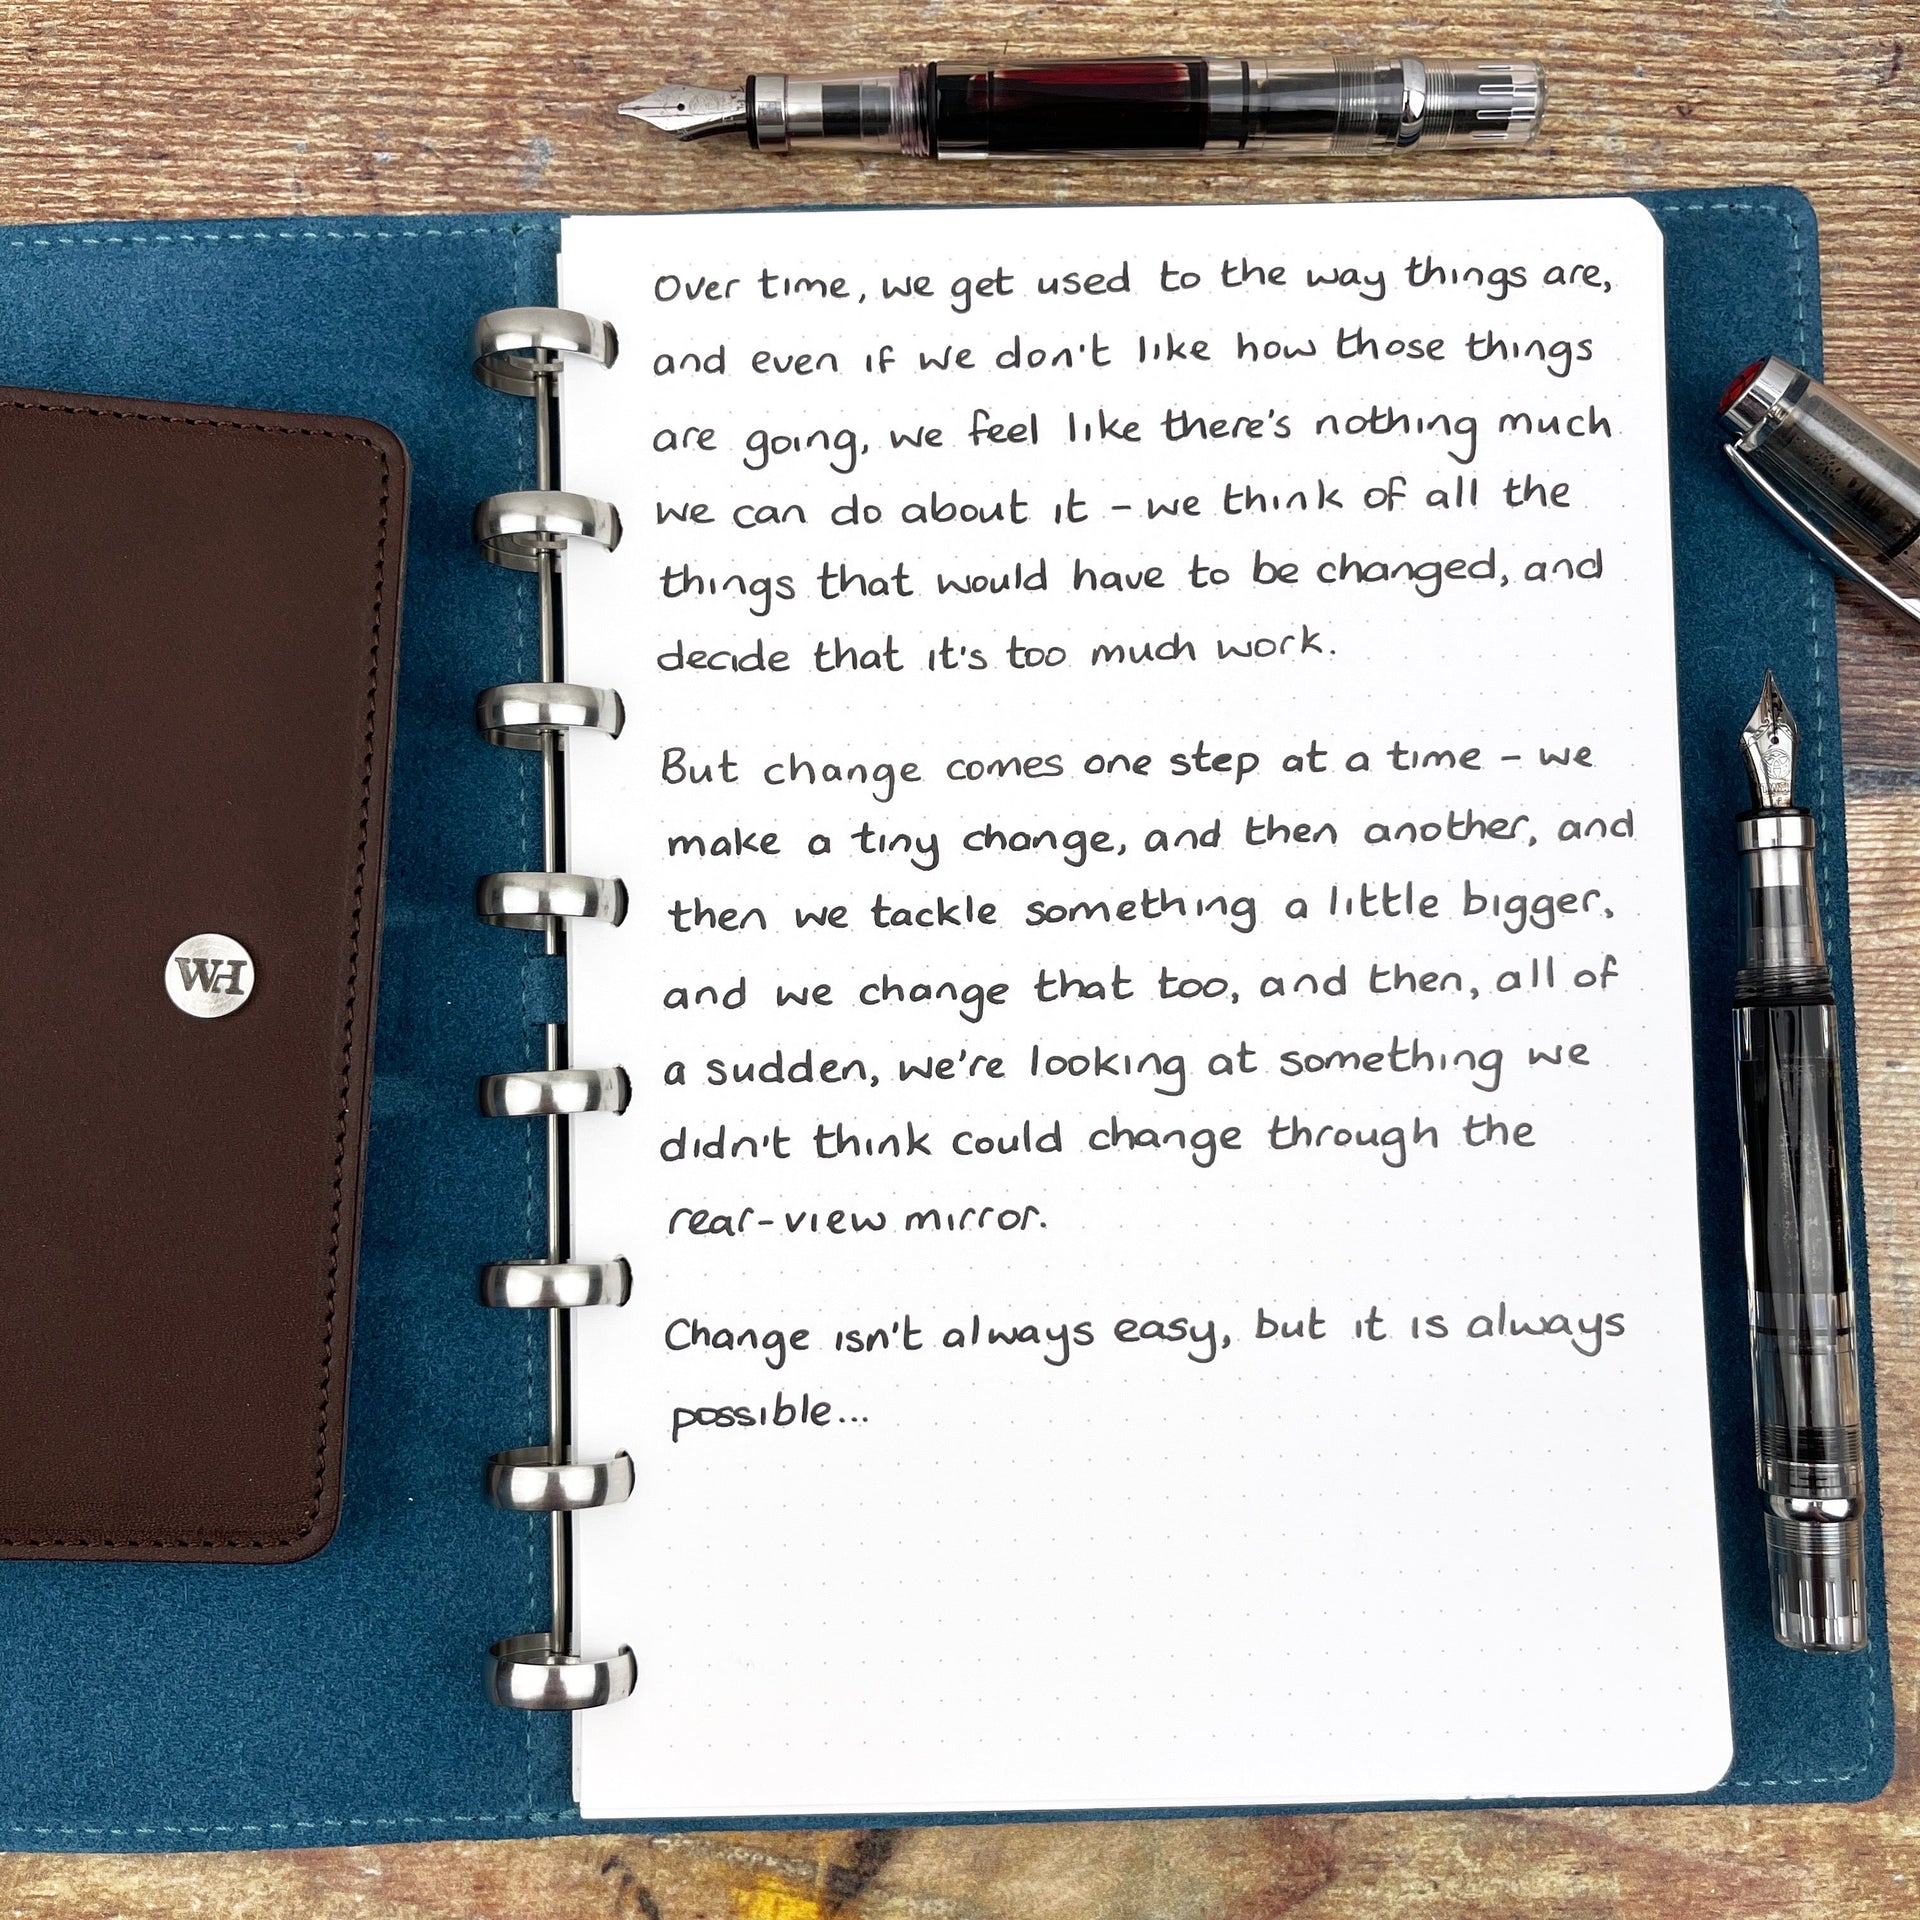 Over time, we get used to the way things are,
and even if we don't like how those things
are going, we feel like there's nothing much
we can do about it - we think of all the
things that would have to be changed, and
decide that it's too much work.
But change comes one step at a time - we
make a tiny change, and then another, and
then we tackle something a little bigger,
and we change that too, and then, all of
a sudden, we're looking at something we
didn't think could change through the
rear-view mirror.
Change isn't always easy, but it is always
possible...
WH